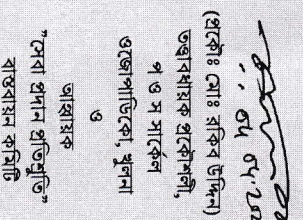 (প্রকৌঃ মোঃ রকিব উদ্দিন)
তত্ত্বাবধায়ক প্রকৌশলী,
প ও স সার্কেল
ওজোপাডিকো, খুলনা
ও
আহবায়ক
"সেবা প্রদান প্রতিশ্রুতি"
বাস্তবায়ন কমিটি